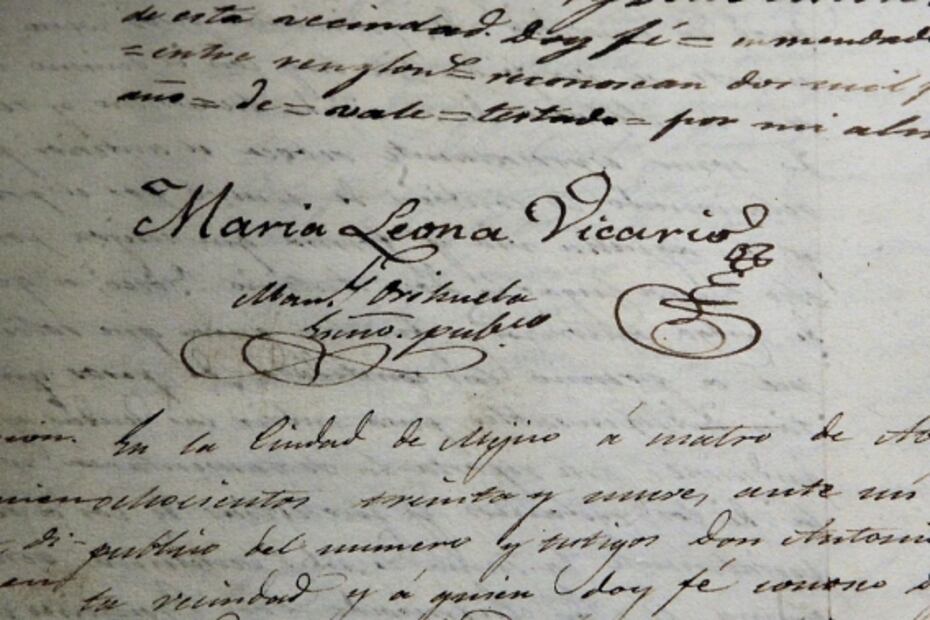 de esta vecindad. Doy fé = enmendado
= entre renglons = reconoscan dos mil p
año = de = vale = testado = por mi
Maria Leona Vicario
Man.l Orihuela
Essno. pubco
En la Ciudad de Mejico á cuatro de
ochocientos treinta y nueve, ante mi
publico del numero y testigos Don Antonio
ta vecindad y á quien doy fé conosco